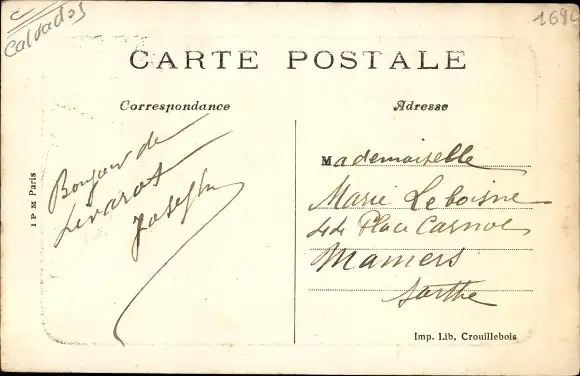 C
Calvados
1694
CARTE POSTALE
Correspondance
Adresse
Bonjour de
Livarot
Joseph
Mademoiselle
Marie Leboisne
44 Place Carnot
Mamers
Sarthe
I P M Paris
Imp. Lib. Crouillebois